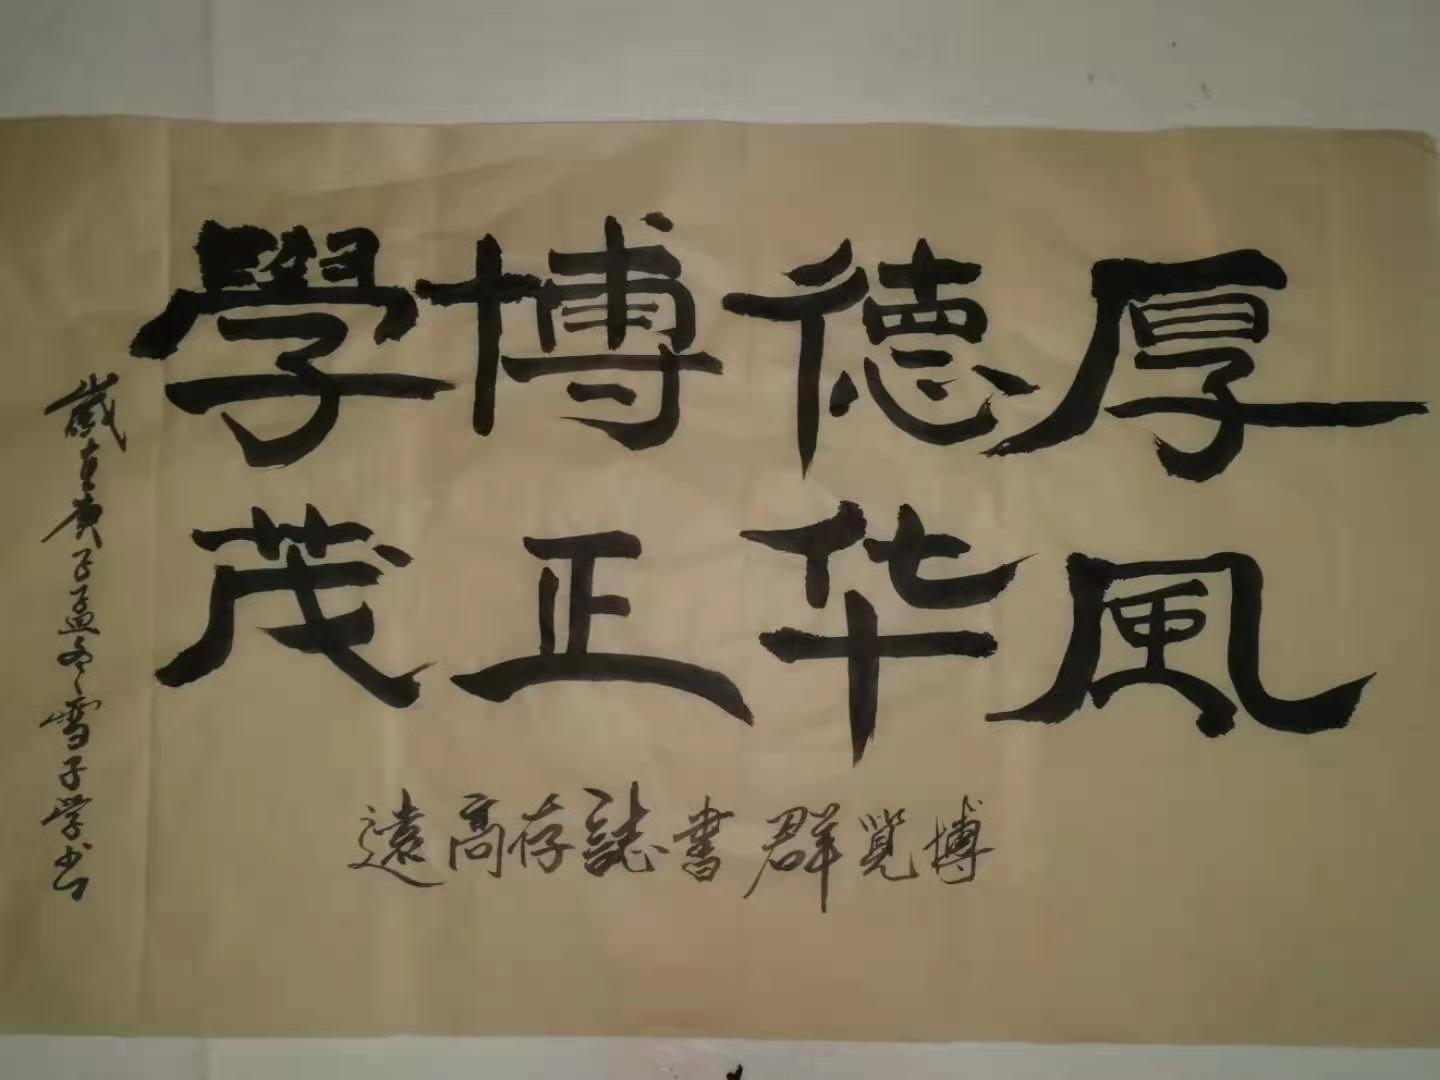 厚德博學
風华正茂
博覽群書誌存高遠
歲在庚子孟冬雪子学书